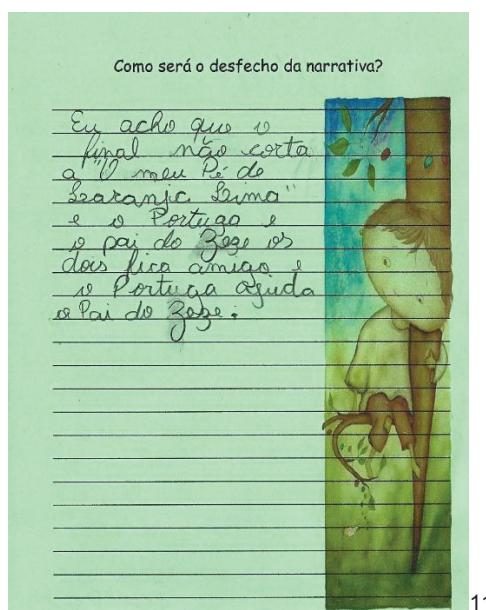 Como será o desfecho da narrativa?
Eu acho que o
final não corta
a "O meu Pé de
Laranja Lima"
e o Portuga e
o pai do Zeze os
dois fica amigo e
o Portuga ajuda
o Pai do Zeze.
11